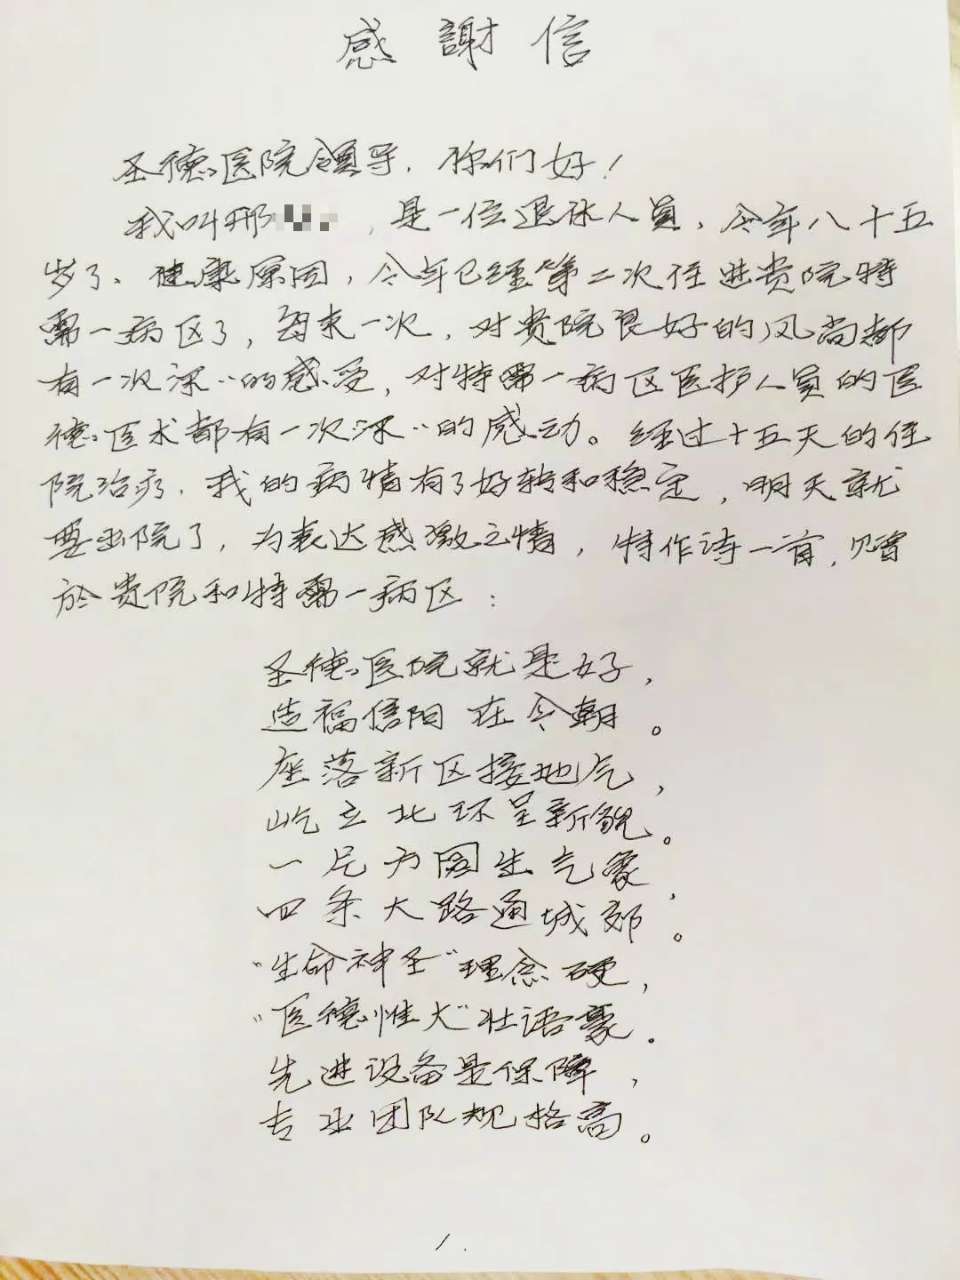 感謝信
圣德医院領导，你们好！
我叫邢，是一位退休人员，今年八十五
岁了、健康原因，今年已经第二次住进贵院特
需一病区了，每来一次，对贵院良好的风尚都
有一次深〻的感受，对特需一病区医护人员的医
德医术都有一次深〻的感动。经过十五天的住
院治疗，我的病情有了好转和稳定，明天就
要出院了，为表达感激之情，特作诗一首，赠
於贵院和特需一病区：
圣德医院就是好，
造福信阳在今朝。
座落新区接地气，
屹立北环呈新貌。
一尺方圆生气象，
四条大路通城郊。
“生命神圣”理念硬，
“医德惟大”壮语豪。
先进设备是保障，
专业团队规格高。
1.